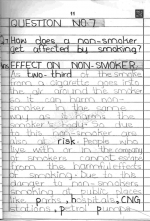 11
QUESTION NO.7
Q7 How does a non-smoker
get affected by smoking?
Ans EFFECT ON NON-SMOKER.
As two-third of the smoke
from a cigarette goes into
the air around the smoker
so it can harm non-
smoker in the same
way as it harms the
smoker's body. So due
to this non-smoker are
also at risk. People who
live with or in the company
of smokers cannot escape
from the harmful effects
of smoking. Due to this
danger to non-smokers
smoking at public places
like parks, hospitals, CNG
stations, petrol pumps